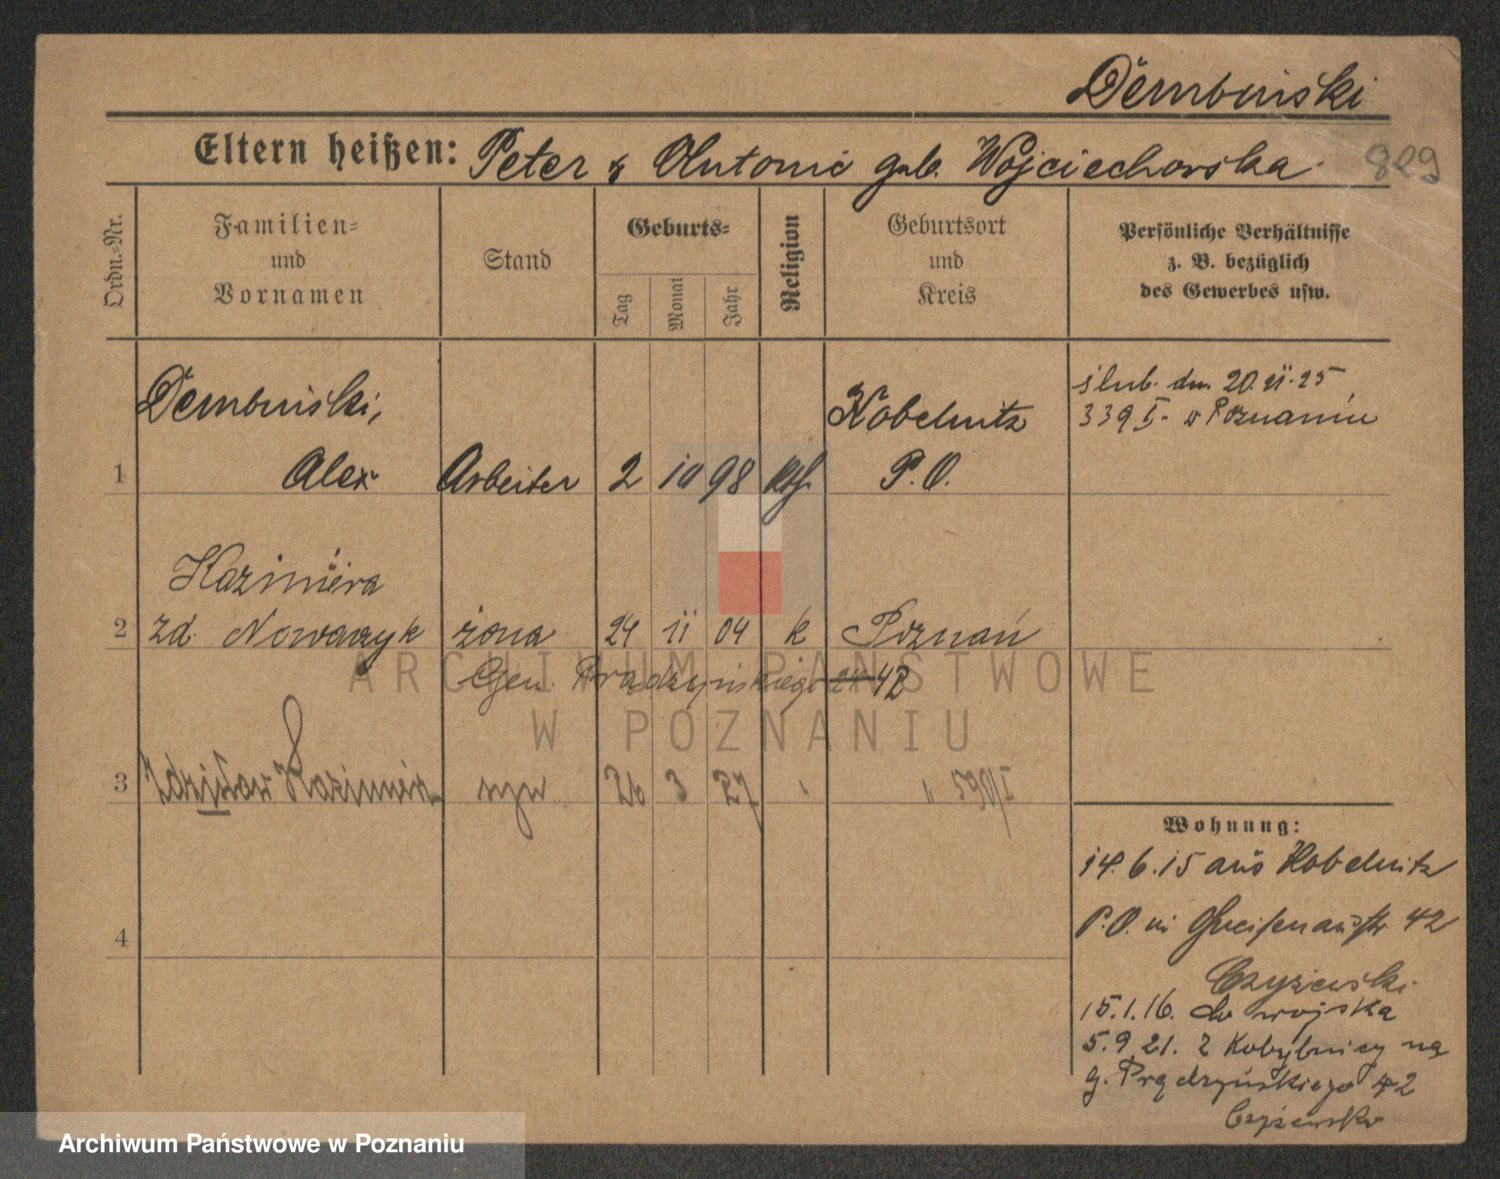 Dembinski
Eltern heißen: Peter & Antonie geb. Wojciechowska 829
Ordn.-Nr.
Familien-
und
Vornamen
Stand
Geburts-
Tag
Monat
Jahr
Religion
Geburtsort
und
Kreis
Persönliche Verhältnisse
z. B. bezüglich
des Gewerbes usw.
Dembinski, Kobelnitz ślub. dn. 20.II.25
339 I. w Poznaniu
1 Alex Arbeiter 2 10 98 kth. P.O.
Kazimiera
2 zd. Nowaczyk żona 24 11 04 k Poznań
Gen. Prądzyńskiego 42
3 Zdzisław Kazimierz syn 26 3 27 " " 590/I
4
Wohnung:
14.6.15 aus Kobelnitz
P.O. in Gneisenaustr. 42
Czyżewski
15.1.16. do wojska
5.9.21. z Kobylnicy na
g. Prądzyńskiego 42
Czyżewski
ARCHIWUM PAŃSTWOWE
W POZNANIU
Archiwum Państwowe w Poznaniu